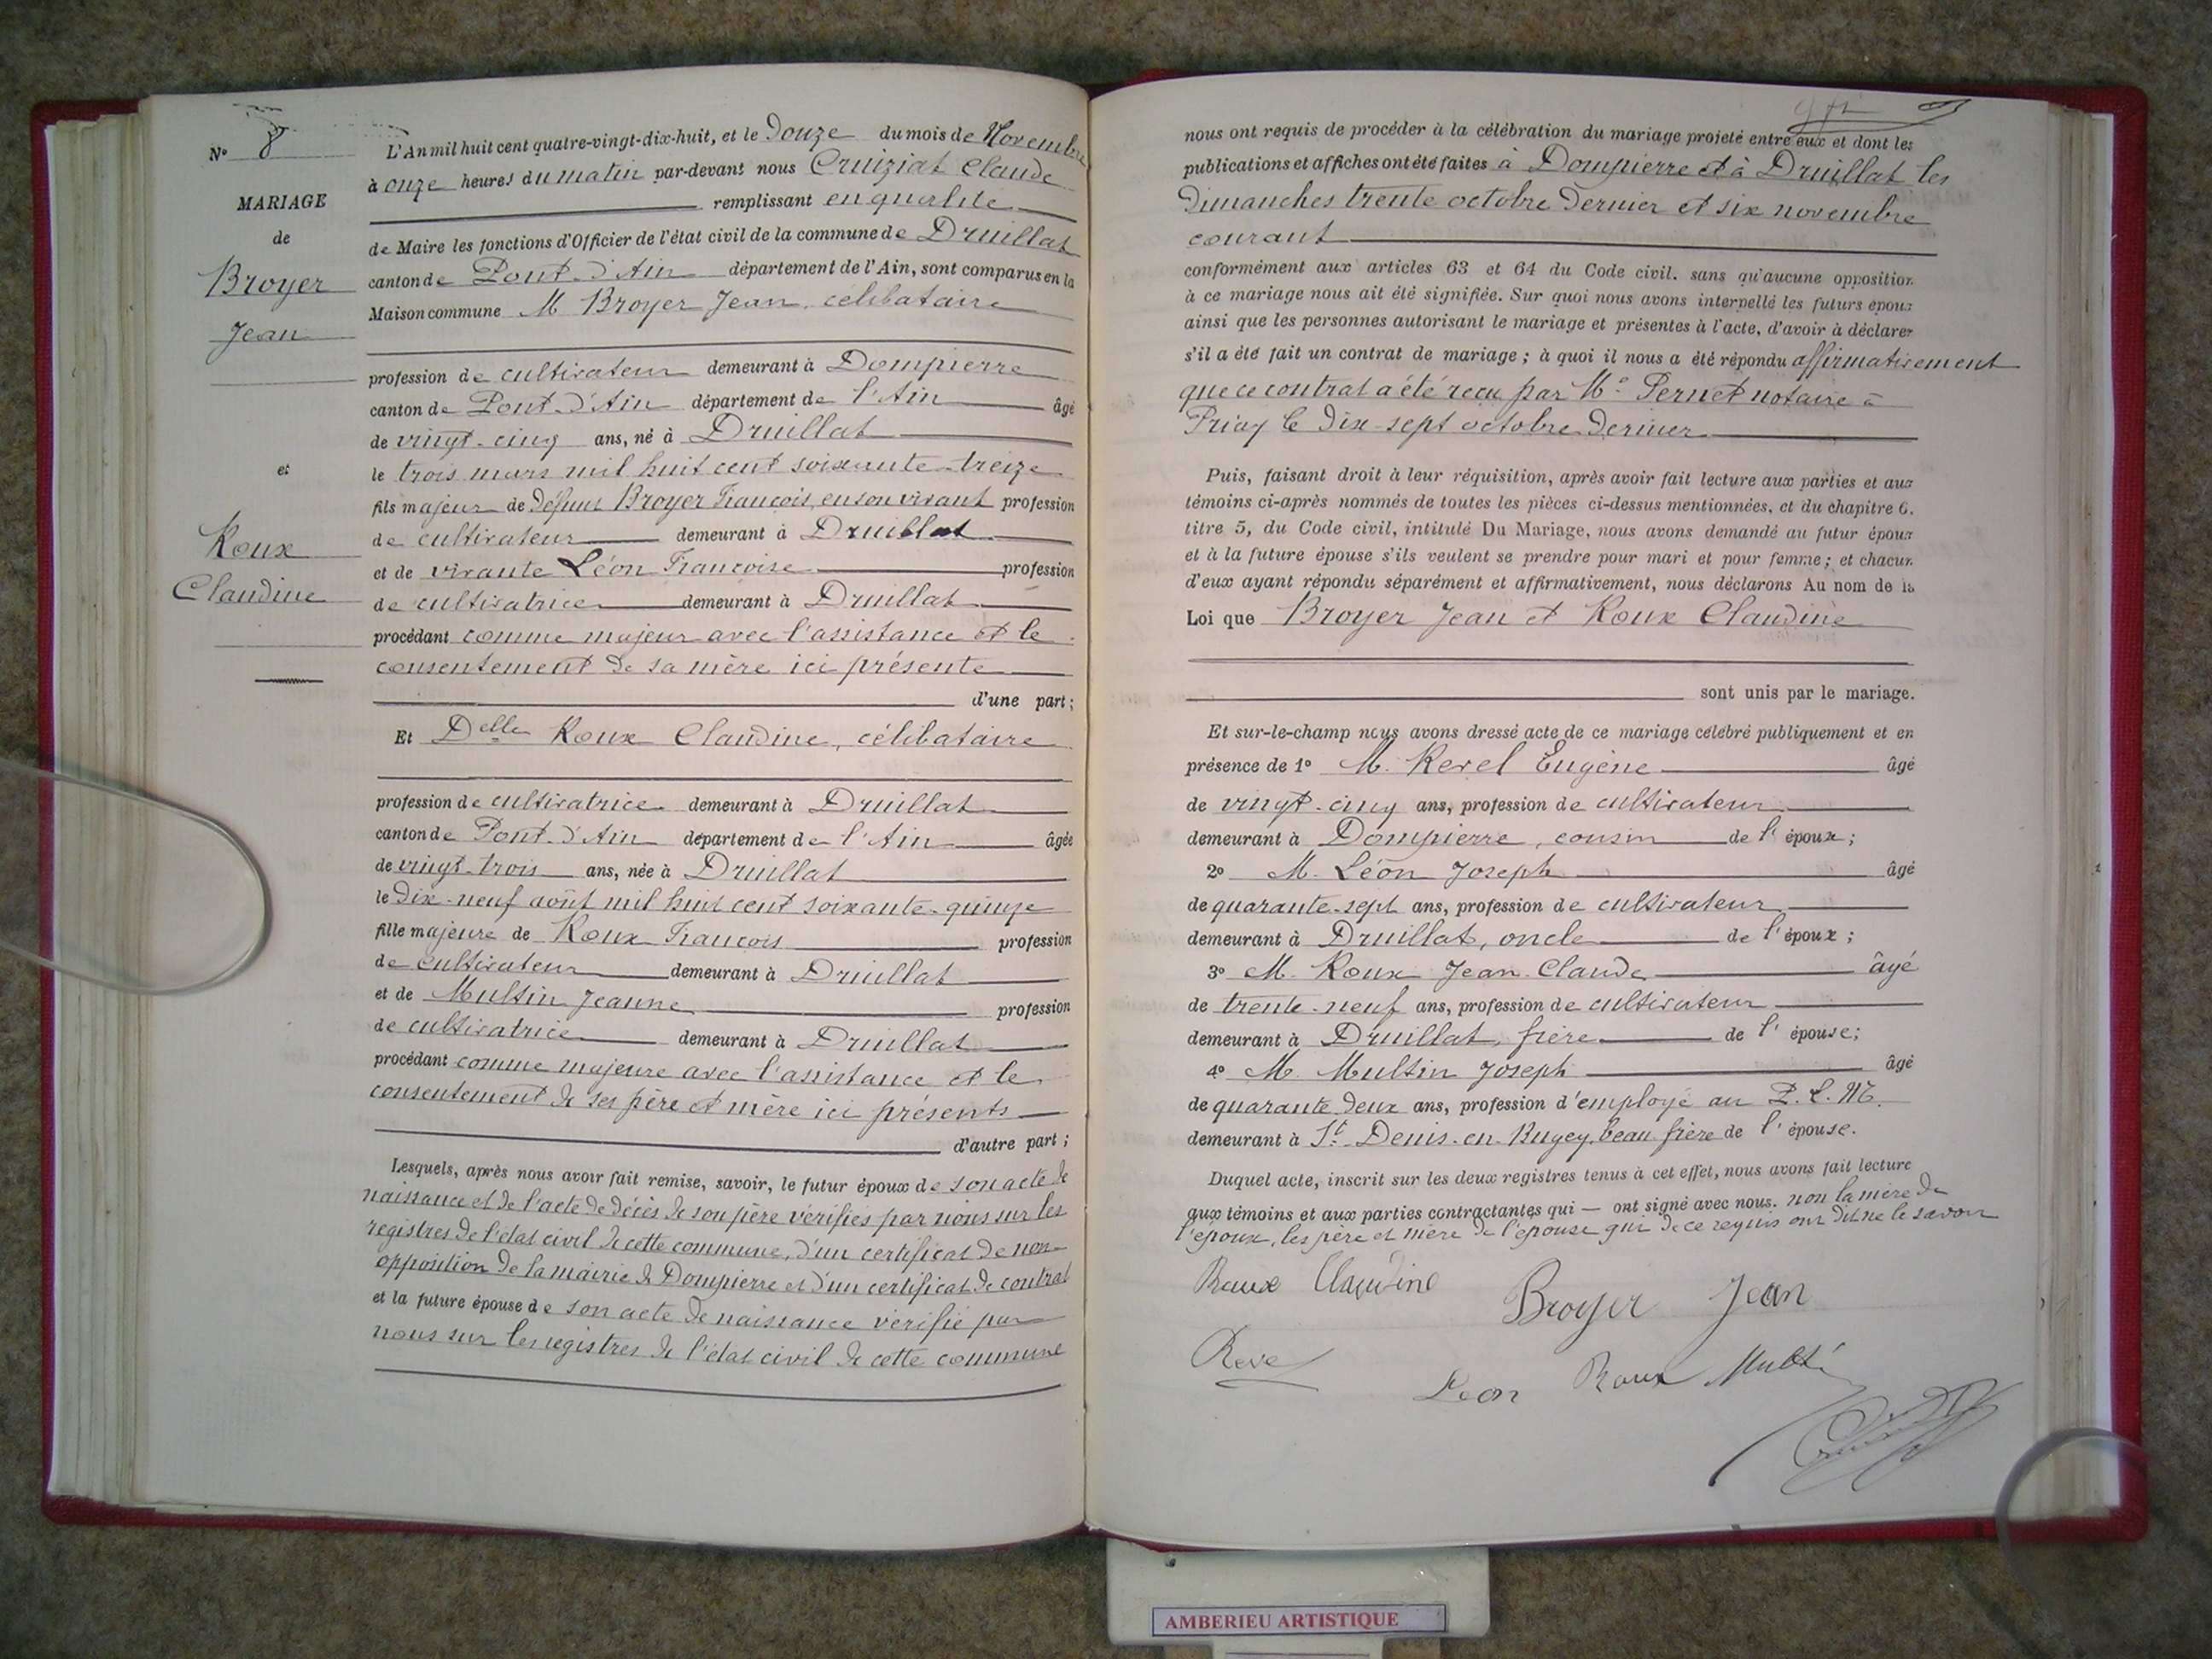 N° 8
MARIAGE
de
Broyer
Jean
et
Roux
Claudine
L'An mil huit cent quatre-vingt-dix-huit, et le Douze du mois de Novembre
à onze heures du matin par-devant nous Cruiziat Claude
remplissant en qualité
de Maire les fonctions d'Officier de l'état civil de la commune de Druillat
canton de Pont-d'Ain département de l'Ain, sont comparus en la
Maison commune M Broyer Jean, célibataire
profession de cultivateur demeurant à Dompierre
canton de Pont-d'Ain département de l'Ain âgé
de vingt-cinq ans, né à Druillat
le trois mars mil huit cent soixante-treize
fils majeur de défunt Broyer François, en son vivant profession
de cultivateur demeurant à Druillat
et de vivante Léon Françoise profession
de cultivatrice demeurant à Druillat
procédant comme majeur avec l'assistance et le
consentement de sa mère ici présente
d'une part;
Et Delle Roux Claudine, célibataire
profession de cultivatrice demeurant à Druillat
canton de Pont-d'Ain département de l'Ain âgée
de vingt-trois ans, née à Druillat
le Dix-neuf août mil huit cent soixante-quinze
fille majeure de Roux François profession
de cultivateur demeurant à Druillat
et de Multin Jeanne profession
de cultivatrice demeurant à Druillat
procédant comme majeure avec l'assistance et le
consentement de ses père et mère ici présents
d'autre part;
Lesquels, après nous avoir fait remise, savoir, le futur époux de son acte de
naissance et de l'acte de décès de son père vérifiés par nous sur les
registres de l'état civil de cette commune, d'un certificat de non-
opposition de la mairie de Dompierre et d'un certificat de contrat
et la future épouse de son acte de naissance vérifié par
nous sur les registres de l'état civil de cette commune
nous ont requis de procéder à la célébration du mariage projeté entre eux et dont les
publications et affiches ont été faites à Dompierre et à Druillat les
Dimanches trente octobre dernier et six novembre
courant
conformément aux articles 63 et 64 du Code civil. sans qu'aucune opposition
à ce mariage nous ait été signifiée. Sur quoi nous avons interpellé les futurs époux
ainsi que les personnes autorisant le mariage et présentes à l'acte, d'avoir à déclarer
s'il a été fait un contrat de mariage; à quoi il nous a été répondu affirmativement
que ce contrat a été reçu par Me Pernet notaire à
Priay le Dix-sept octobre dernier
Puis, faisant droit à leur réquisition, après avoir fait lecture aux parties et aux
témoins ci-après nommés de toutes les pièces ci-dessus mentionnées, et du chapitre 6.
titre 5, du Code civil, intitulé Du Mariage, nous avons demandé au futur époux
et à la future épouse s'ils veulent se prendre pour mari et pour femme; et chacun
d'eux ayant répondu séparément et affirmativement, nous déclarons Au nom de la
Loi que Broyer Jean et Roux Claudine
sont unis par le mariage.
Et sur-le-champ nous avons dressé acte de ce mariage célébré publiquement et en
présence de 1° M. Revel Eugène âgé
de vingt-cinq ans, profession de cultivateur
demeurant à Dompierre, cousin de l'époux;
2° M. Léon Joseph âgé
de quarante-sept ans, profession de cultivateur
demeurant à Druillat, oncle de l'époux;
3° M. Roux Jean-Claude âgé
de trente-neuf ans, profession de cultivateur
demeurant à Druillat, frère de l'épouse;
4° M. Multin Joseph âgé
de quarante-deux ans, profession d'employé au P.L.M.
demeurant à St Denis-en-Bugey, beau frère de l'épouse.
Duquel acte, inscrit sur les deux registres tenus à cet effet, nous avons fait lecture
aux témoins et aux parties contractantes qui — ont signé avec nous. non la mère de
l'époux, les père et mère de l'épouse qui de ce requis ont dit ne le savoir
Roux Claudine
Broyer Jean
Revel
Léon Roux Multin
AMBERIEU ARTISTIQUE